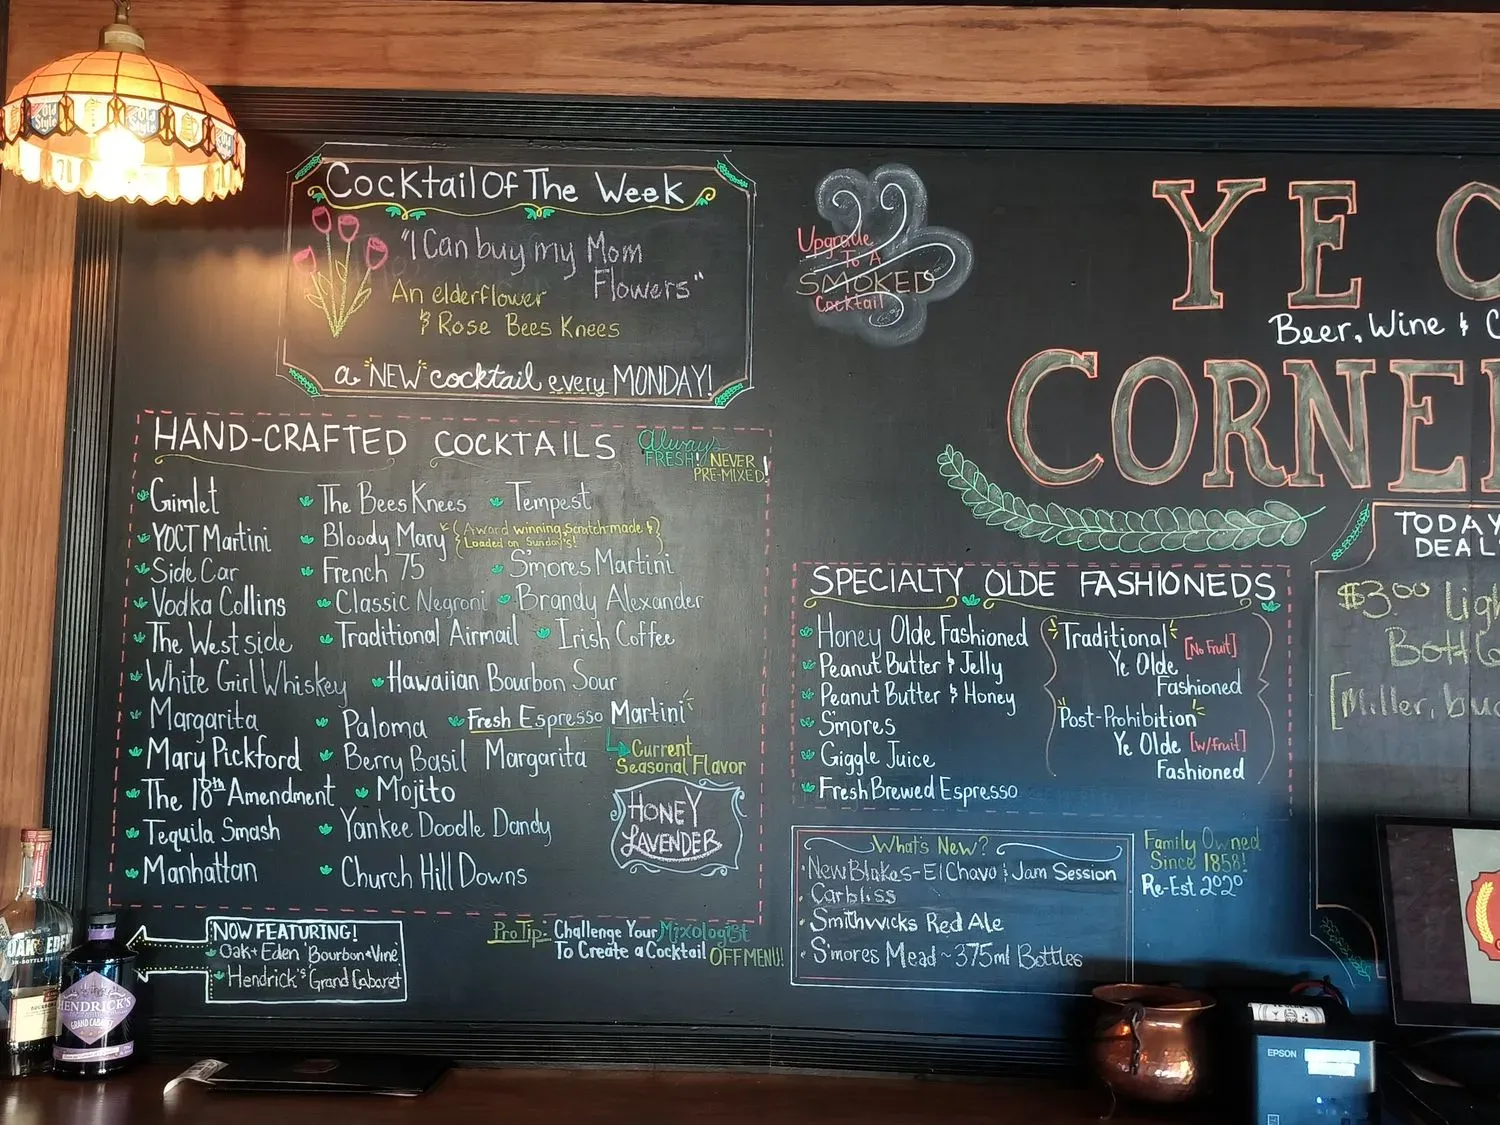 Cocktail Of The Week
"I Can buy my Mom
Flowers"
An elderflower
& Rose Bees Knees
a "NEW" cocktail every MONDAY!
Upgrade
To A
SMOKED
Cocktail
YE
Beer, Wine &
CORNE
HAND-CRAFTED COCKTAILS
Always
FRESH! NEVER
PRE-MIXED!
Gimlet
The Bees Knees
Tempest
YOCT Martini
Bloody Mary
(Award winning, scratch-made &
Loaded on Sunday's!)
Side Car
French 75
S'mores Martini
Vodka Collins
Classic Negroni
Brandy Alexander
The Westside
Traditional Airmail
Irish Coffee
White Girl Whiskey
Hawaiian Bourbon Sour
Margarita
Paloma
Fresh Espresso Martini
Current
Seasonal Flavor
HONEY
LAVENDER
Mary Pickford
Berry Basil Margarita
The 18th Amendment
Mojito
Tequila Smash
Yankee Doodle Dandy
Manhattan
Church Hill Downs
NOW FEATURING!
Oak + Eden 'Bourbon + Vine'
Hendrick's 'Grand Cabaret
Pro Tip: Challenge Your Mixologist
To Create a Cocktail OFF MENU!
SPECIALTY OLDE FASHIONEDS
Honey Olde Fashioned
Peanut Butter & Jelly
Peanut Butter & Honey
S'mores
Giggle Juice
Fresh Brewed Espresso
Traditional
Ye Olde [No Fruit]
Fashioned
Post-Prohibition
Ye Olde [w/fruit]
Fashioned
What's New?
New Blakes - El Chavo & Jam Session
Carbliss
Smithwicks Red Ale
S'mores Mead ~ 375ml Bottles
Family Owned
Since 1858!
Re-Est 2020
TODAY
DEAL
$3.00
[Miller,
OAK & EDEN
HENDRICK'S
GRAND CABARET
EPSON
Old
Style
Old
Style